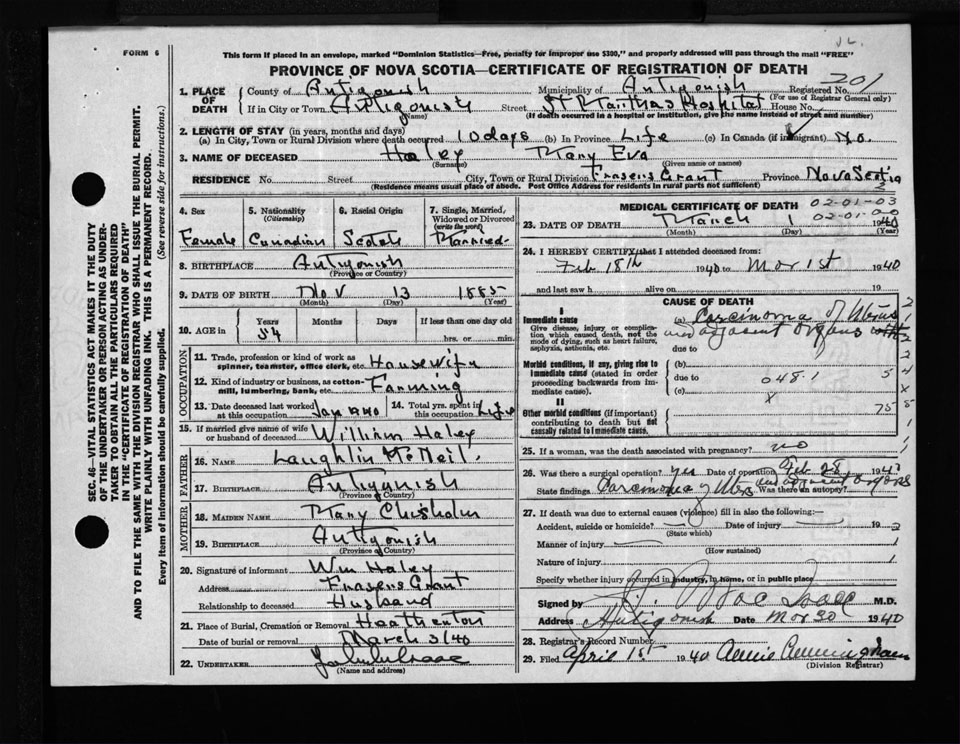 FORM 6
This form if placed in an envelope, marked "Dominion Statistics—Free, penalty for improper use $300," and properly addressed will pass through the mail "FREE"
PROVINCE OF NOVA SCOTIA—CERTIFICATE OF REGISTRATION OF DEATH
201
1. PLACE OF DEATH County of Antigonish Municipality of Antigonish Registered No.
(For use of Registrar General only)
If in City or Town Antigonish Street St Marthas Hospital House No.
(Name) (If death occurred in a hospital or institution, give the name instead of street and number)
2. LENGTH OF STAY (in years, months and days)
(a) In City, Town or Rural Division where death occurred 10 days (b) In Province Life (c) In Canada (if immigrant) No.
3. NAME OF DECEASED Haley Mary Eva
(Surname) (Given name or names)
RESIDENCE No. Street City, Town or Rural Division Frasers Grant Province Nova Scotia
(Residence means usual place of abode. Post Office Address for residents in rural parts not sufficient)
4. Sex 5. Nationality (Citizenship) 6. Racial Origin 7. Single, Married, Widowed or Divorced (write the word)
Female Canadian Scotch Married
8. BIRTHPLACE Antigonish
(Province or Country)
9. DATE OF BIRTH Nov 13 1885
(Month) (Day) (Year)
10. AGE in Years Months Days If less than one day old
54 hrs. or min.
OCCUPATION
11. Trade, profession or kind of work as spinner, teamster, office clerk, etc. Housewife
12. Kind of industry or business, as cotton-mill, lumbering, bank, etc. Farming
13. Date deceased last worked at this occupation Jan 1940 14. Total yrs. spent in this occupation Life
15. If married give name of wife or husband of deceased William Haley
FATHER
16. NAME Laughlin McNeil
17. BIRTHPLACE Antigonish
(Province or Country)
MOTHER
18. MAIDEN NAME Mary Chisholm
19. BIRTHPLACE Antigonish
(Province or Country)
20. Signature of informant Wm Haley
Address Frasers Grant
Relationship to deceased Husband
21. Place of Burial, Cremation or Removal Heatherton
Date of burial or removal March 3/40
22. UNDERTAKER
(Name and address)
MEDICAL CERTIFICATE OF DEATH 02-01-03
02-01-00
23. DATE OF DEATH March 1 1940
(Month) (Day) (Year)
24. I HEREBY CERTIFY that I attended deceased from:
Feb 18th 1940 to Mar 1st 1940
and last saw h alive on 19
CAUSE OF DEATH
I
Immediate cause (a) Carcinoma of Uterus
Give disease, injury or complication which caused death, not the mode of dying, such as heart failure, asphyxia, asthenia, etc.
and adjacent organs
due to
Morbid conditions, if any, giving rise to immediate cause (stated in order proceeding backwards from immediate cause).
(b)
due to 048.1
(c)
II
Other morbid conditions (if important) contributing to death but not causally related to immediate cause.
25. If a woman, was the death associated with pregnancy? no
26. Was there a surgical operation? yes Date of operation Feb 28 1940
State findings Carcinoma of Uterus and adjacent organs Was there an autopsy?
27. If death was due to external causes (violence) fill in also the following:—
Accident, suicide or homicide? Date of injury 19
(State which)
Manner of injury
(How sustained)
Nature of injury
Specify whether injury occurred in industry, in home, or in public place
Signed by Mac Isaac M.D.
Address Antigonish Date Mar 30 1940
28. Registrar's Record Number
29. Filed April 1st 1940 Annie Cunningham
(Division Registrar)
SEC. 46—VITAL STATISTICS ACT MAKES IT THE DUTY
OF THE UNDERTAKER OR PERSON ACTING AS UNDER-
TAKER TO OBTAIN ALL THE PARTICULARS REQUIRED
IN THE "CERTIFICATE OF REGISTRATION OF DEATH"
AND TO FILE THE SAME WITH THE DIVISION REGISTRAR WHO SHALL ISSUE THE BURIAL PERMIT.
WRITE PLAINLY WITH UNFADING INK. THIS IS A PERMANENT RECORD.
Every item of information should be carefully supplied. (See reverse side for instructions.)